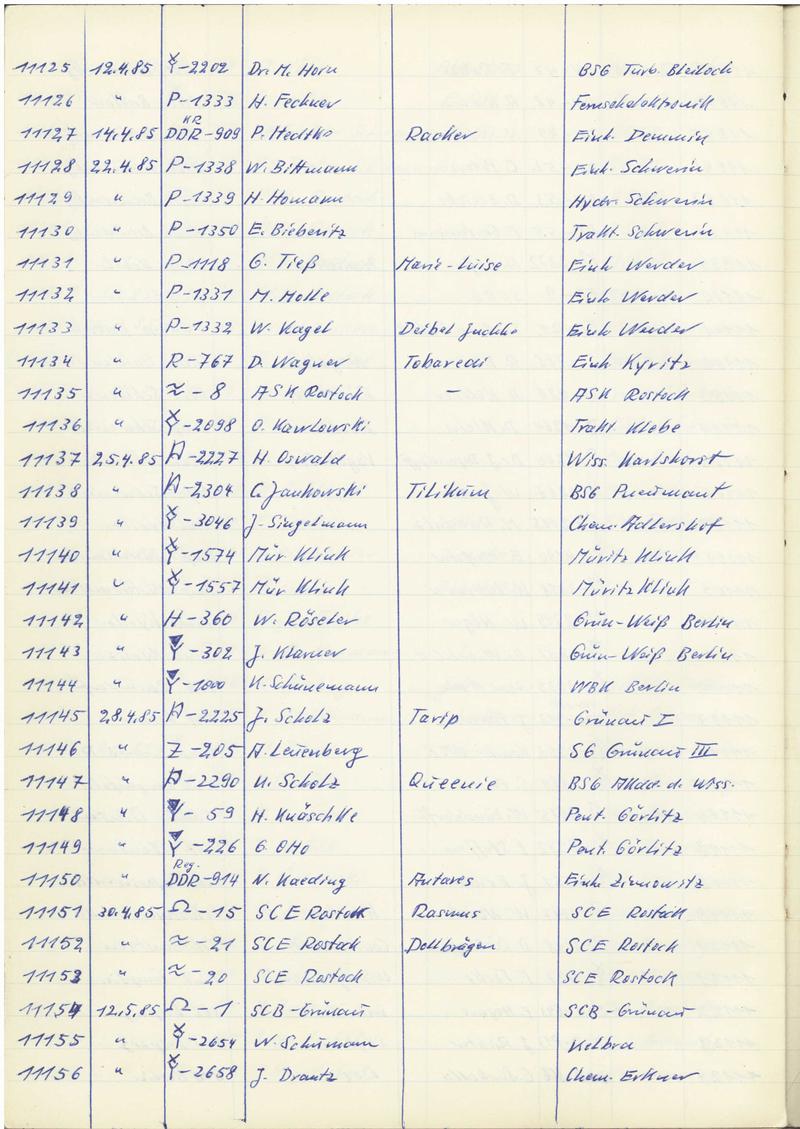 11125 12.4.85 Y-2202 Dr. M. Horn BSG Turb. Bleiloch
11126 " P-1333 H. Fechner Fernsehelektronik
11127 14.4.85 KR DDR-909 P. Medtke Racker Einh. Demmin
11128 22.4.85 P-1338 W. Bittmann Einh. Schwerin
11129 " P-1339 H. Homann Hydr. Schwerin
11130 " P-1350 E. Bieberitz Trakt. Schwerin
11131 " P-1118 G. Tieß Marie-Luise Einh Werder
11132 " P-1331 M. Molle Einh Werder
11133 " P-1332 W. Kagel Deibel Juchhe Einh Werder
11134 " R-767 D. Wagner Einh Kyritz
11135 " ≈-8 ASK Rostock - ASK Rostock
11136 " Y-2098 O. Kawlowski Trakt
11137 25.4.85 A-2227 H. Oswald Wiss. Karlshorst
11138 " A-2304 C. Jankowski Tilikum BSG Pneumant
11139 " Y-3046 J. Singelmann Chem. Adlershof
11140 " Y-1574 Mür Klink Müritz Klink
11141 " Y-1557 Mür Klink Müritz Klink
11142 " H-360 W. Röseler Grün-Weiß Berlin
11143 " Y-302 J. Klarner Grün-Weiß Berlin
11144 " Y-1000 K. Schünemann WBK Berlin
11145 28.4.85 A-2225 J. Scholz Tarip Grünau I
11146 " Z-205 A. Leuenberg SG Grünau III
11147 " A-2290 U. Scholz Queenie BSG Akad. d. Wiss.
11148 " Y-59 H. Knäschke Pent. Görlitz
11149 " Y-226 G. Otto Pent. Görlitz
11150 " Reg. DDR-914 N. Kaeding Antares Einh. Zinnowitz
11151 30.4.85 Ω-15 SCE Rostock Rasmus SCE Rostock
11152 " ≈-21 SCE Rostock Dollbrägen SCE Rostock
11153 " ≈-20 SCE Rostock SCE Rostock
11154 12.5.85 Ω-1 SCB-Grünau SCB-Grünau
11155 " Y-2654 W. Schumann Kelbra
11156 " Y-2658 J. Drantz Chem. Erkner